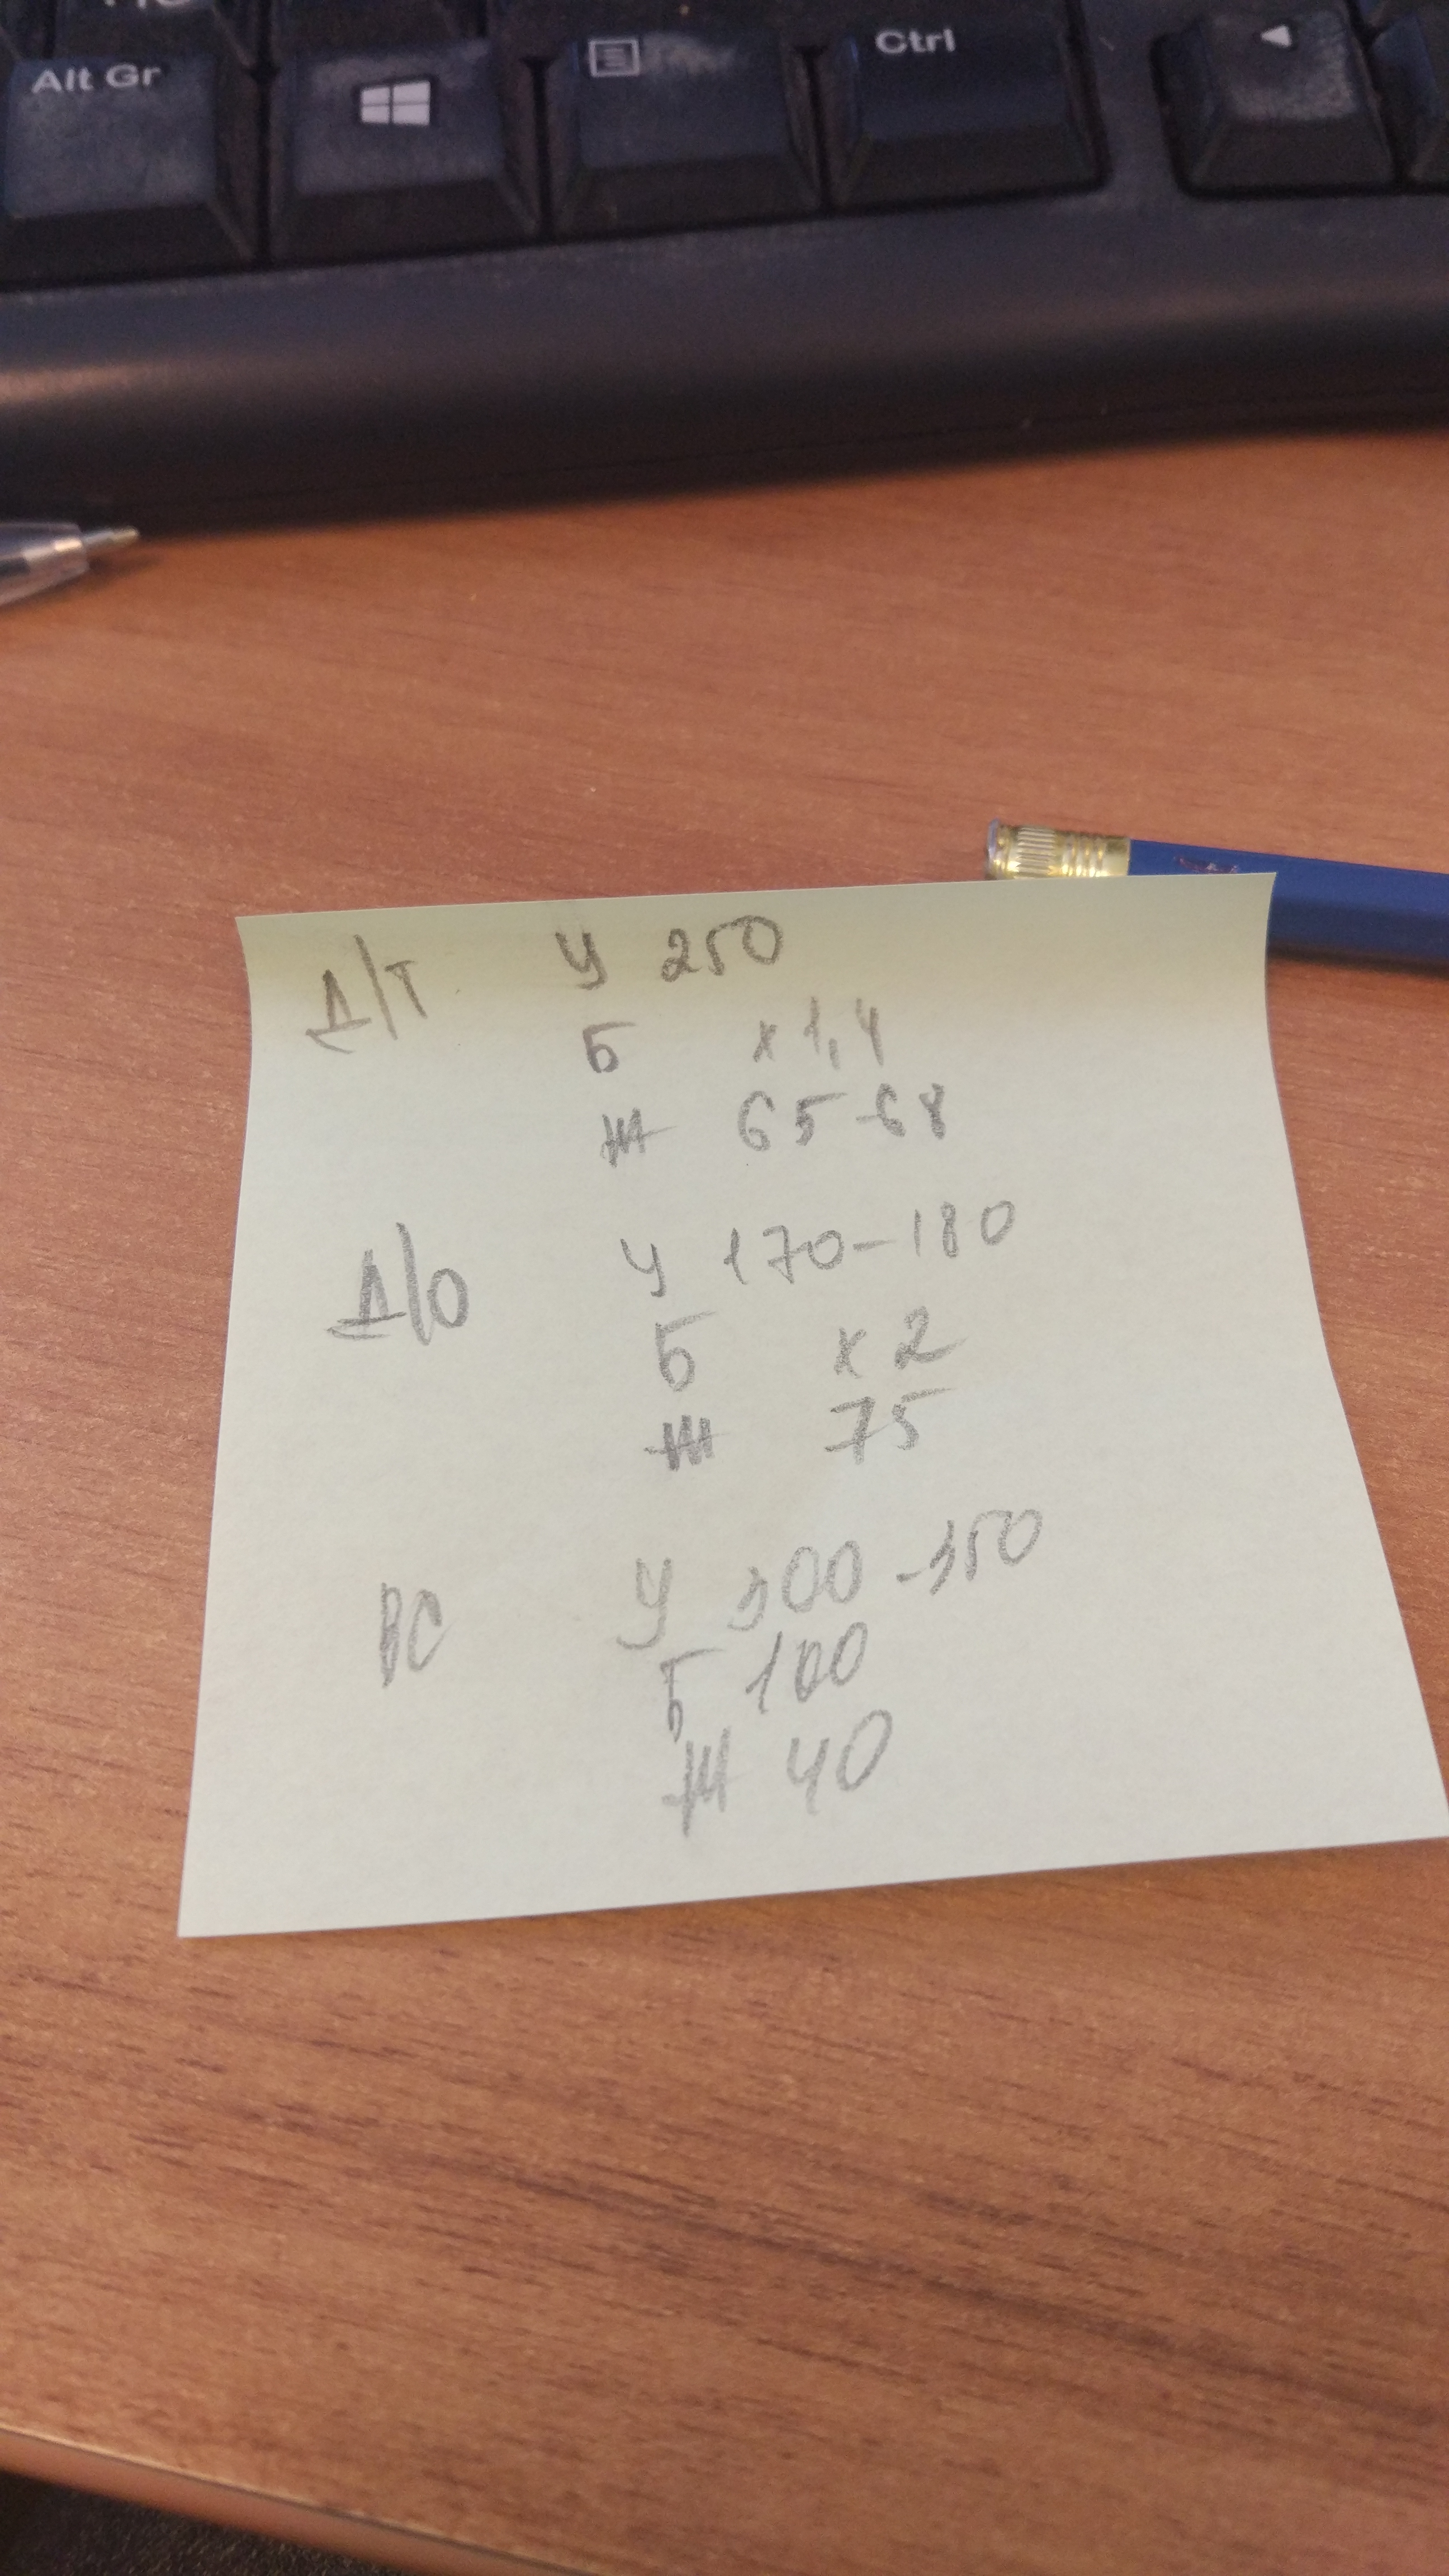 Alt Gr
Ctrl
Д/Т У 250
Б х 1,4
Ж 65-68
Д/О У 170-180
Б х 2
Ж 75
ВС У 300-350
Б 100
Ж 40